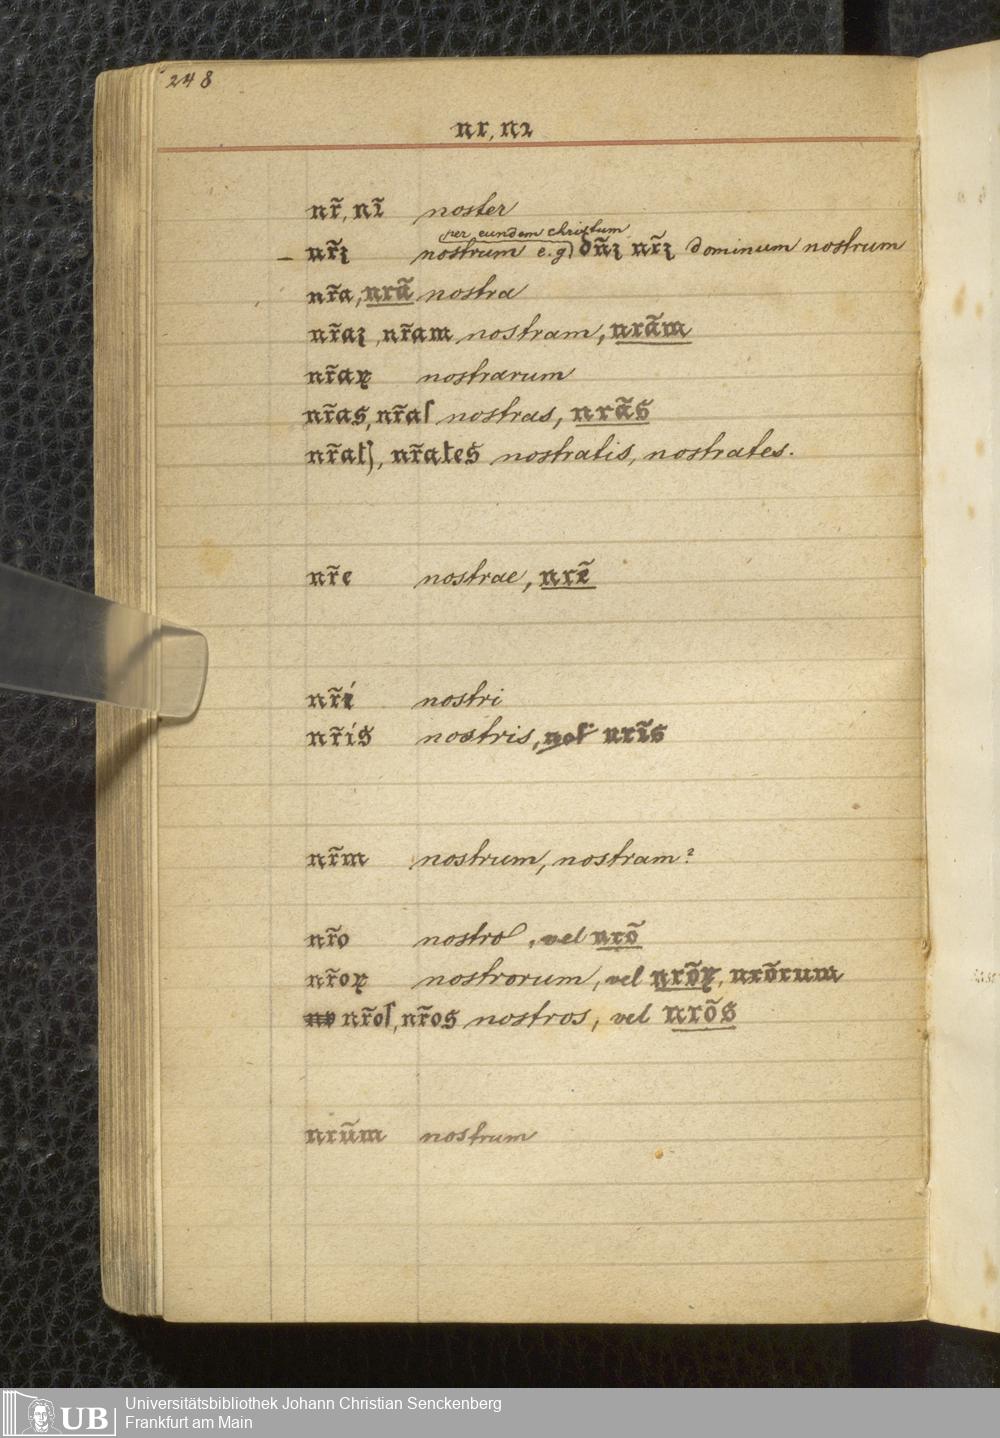 248
nr, nꝛ
nr̃, nꝛ̃ noster
per eundem christum
– nr̃ȝ nostrum e.g) dñȝ nr̃ȝ dominum nostrum
nr̃a, nrã nostra
nr̃aȝ, nr̃am nostram, nrãm
nr̃aꝝ nostrarum
nr̃as, nr̃aſ nostras, nrãs
nr̃at⁊, nr̃ates nostratis, nostrates.
nr̃e nostrae, nrẽ
nr̃i nostri
nr̃ís nostris, nrĩs
nr̃m nostrum, nostram?
nr̃o nostro, vel nrõ
nr̃oꝝ nostrorum, vel nrõꝝ, nrõrum
nr̃oſ, nr̃os nostros, vel nrõs
nrũm nostrum
UB Universitätsbibliothek Johann Christian Senckenberg
Frankfurt am Main